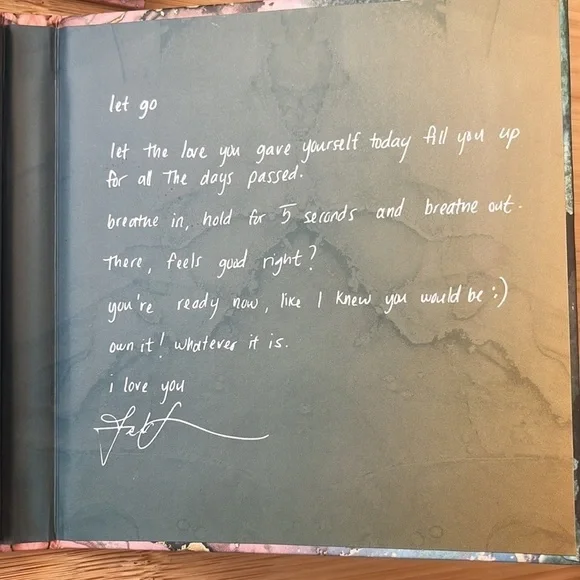 let go
let the love you gave yourself today fill you up
for all the days passed.
breathe in, hold for 5 seconds and breathe out.
There, feels good right?
you're ready now, like I knew you would be :)
own it! whatever it is.
i love you